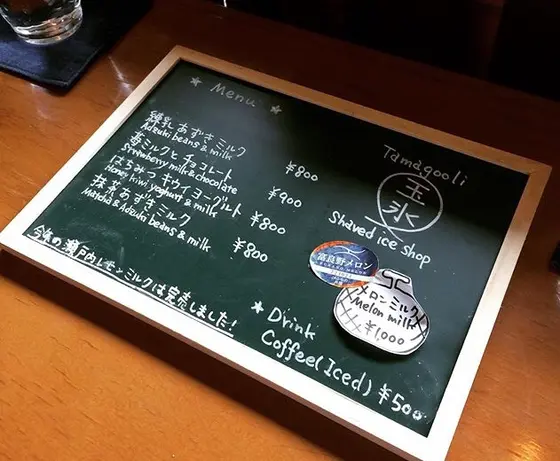 ★ Menu ★
練乳あずきミルク
Adzuki beans & milk ¥800
苺ミルクとチョコレート
Strawberry milk & chocolate ¥900
はちみつキウイヨーグルト
Honey kiwi yoghurt & milk ¥800
抹茶あずきミルク
Matcha & Adzuki beans & milk ¥800
今年の瀬戸内レモンミルクは完売しました!
Tamagooli
玉氷
Shaved ice shop
富良野メロン
メロンミルク
Melon milk
¥1,000
★ Drink
Coffee (Iced) ¥500